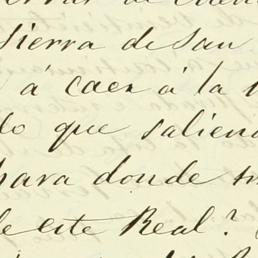 Sierra de San
á caer á la
lo que salien
para donde
de este Real?